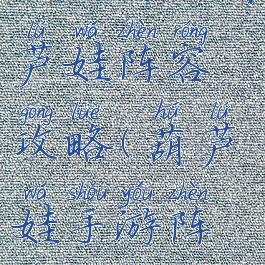 lú wá zhèn róng
芦娃阵容
gōng lüè hú lú
攻略(葫芦
wá shǒu yóu zhèn
娃手游阵